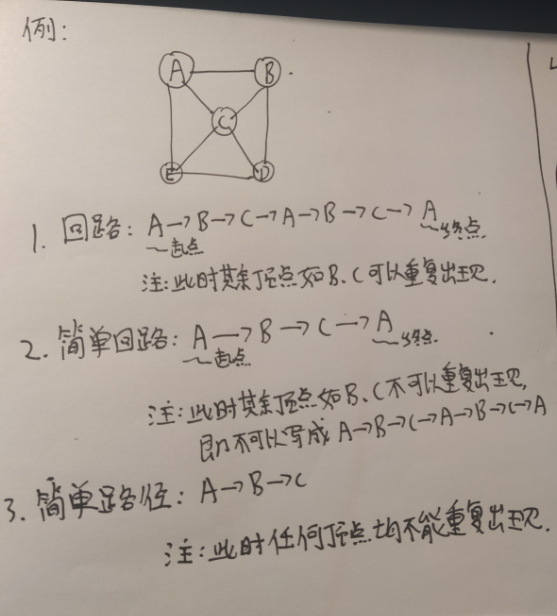 例:
A B
C
E D
1. 回路: A→B→C→A→B→C→A
起点 终点
注:此时其余顶点如B、C可以重复出现.
2. 简单回路: A→B→C→A
起点 终点
注:此时其余顶点如B、C不可以重复出现,
即不可以写成 A→B→C→A→B→C→A
3. 简单路径: A→B→C
注:此时任何顶点均不能重复出现.